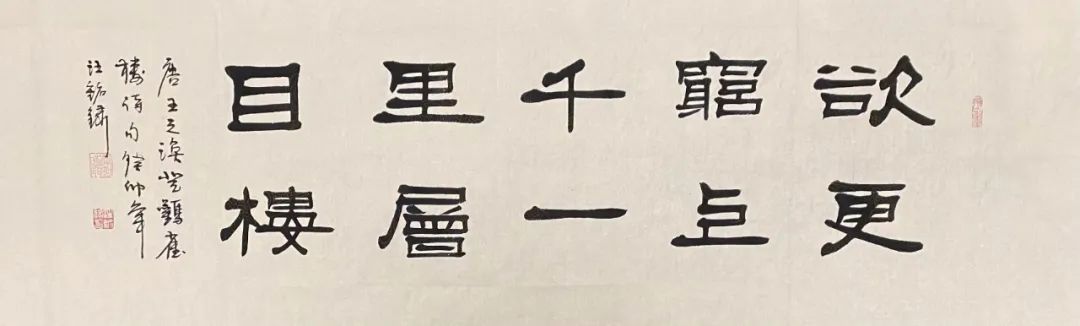 欲窮千里目
更上一層樓
唐王之渙登鸛雀
樓詩句癸卯年